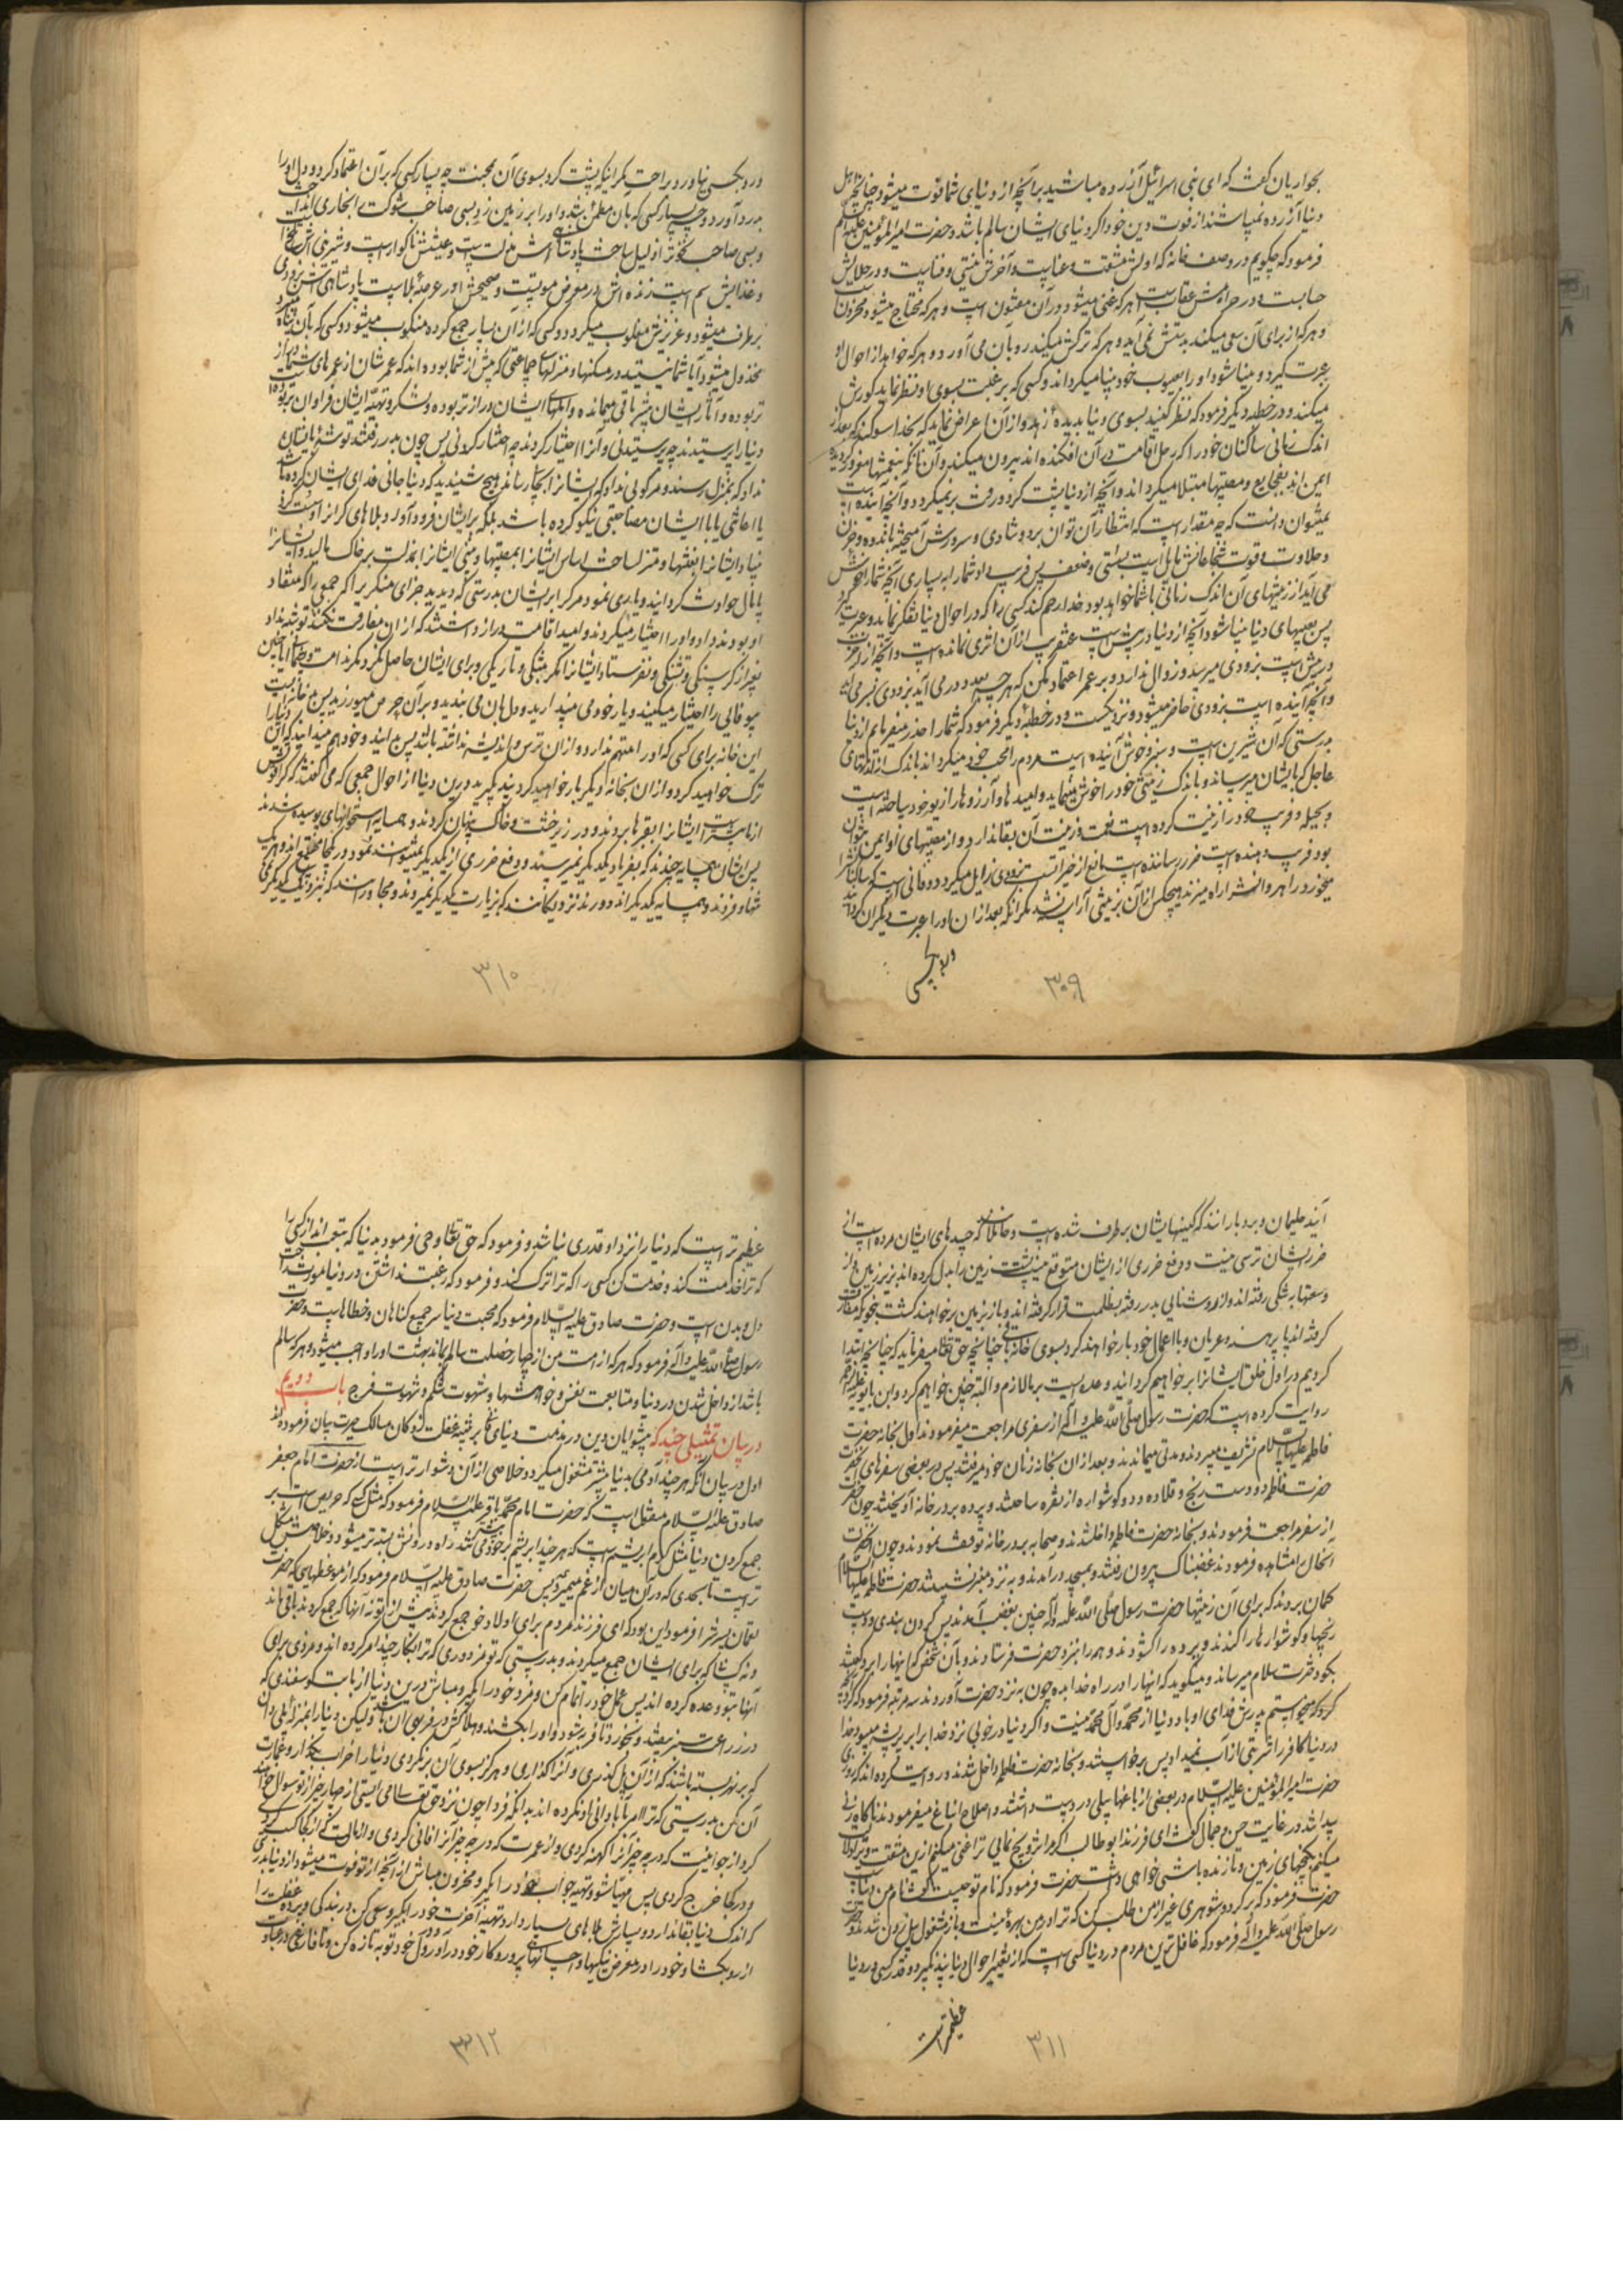 بحواریان گفت که ای بنی اسرائیل آزرده مباشید بر آنچه از دنیای شما فوت میشود چنانچه اهل
دنیا آزرده نمیباشند از فوت دین خود اگر دنیای ایشان سالم باشد و حضرت امیرالمؤمنین علیه السلام
فرمود که چگویم در وصف خانه که اولش مشقت و عناست و آخرش نیستی و فناست و در حلالش
حسابست و در حرامش عقابست هر که غنی میشود در آن مفتون است و هر که محتاج میشود محزونست
و هر که از برای آن سعی میکند بدستش نمی آید و هر که ترکش میکند رو بآن می آورد و هر که خواهد از احوال او
عبرت گیرد و بینا شود او را بعیوب خود بینا میگرداند و کسی که برغبت بسوی او نظر نماید کورش
میکند و در خطبه دیگر فرمود که نظر کنید بسوی دنیا بدیده زهد و از آن اعراض نمائید که بخدا سوگند که بعد از
اندک زمانی ساکنان خود را که رحل اقامت در آن افکنده اند بیرون میکند و آنان که بنعمتها مغرور گردیده
ایمن اند بفجایع و مصیبتها مبتلا میگرداند و آنچه از دنیا پشت کرد و رفت بر نمیگردد و آنچه آینده است
نمیتوان دانست که چه مقدار است که انتظار آن توان برد و شادی و سرورش آمیخته باندوه و حزن
و حلاوت و قوت شجاعانش مایل است بسستی و ضعف پس فریب ندهد شما را بسیاری آنچه شما را خوش
می آید از زینتهای آن اندک زمانی با شما خواهد بود خدا رحم کند کسی را که در احوال دنیا تفکر نماید و عبرت گیرد
پس بعیبهای دنیا بینا شود آنچه از دنیا در پیش است عنقریب از آن اثری نمانده است و آنچه از آخرت
در پیش است بزودی میرسد و زوال ندارد و بر عمر اعتماد مکن که هر چه بعدد در می آید بزودی بسر می آید
و آنچه آینده است بزودی حاضر میشود و نزدیکست و در خطبه دیگر فرمود که شما را حذر میفرمایم از دنیا
بدرستی که آن شیرین است و سبز و خوش آینده است مردم را محب خود میگرداند باندک از لذتهای
عاجل که بایشان میرساند و باندک زینتی خود را خوش مینماید و بامیدها و آرزوها از زیور خود بیاخته است
و بحیله و فریب خود را زینت کرده است نعمت و زینت آن بقا ندارد و از مصیبتهای او ایمن نمیتوان
بود فریب دهنده است ضرر رساننده است مانع از خیراتست بزودی زایل میگردد و فانی است ساکنانش را
میخورد و راهروانش را راه میزند هیچکس از آن بزینتی آراسته نشد مگر آنکه بعد از آن او را عبرت دیگران گردانید
و بر هیچ
۳۰۹
و رو بکسی نیاورد براحت مگر اینکه پشت کرد بسوی آن محنت چه بسیار کسی که بر آن اعتماد کرد و دل او را
بدرد آورد و چه بسیار کسی که بآن مطمئن شد و او را بر زمین زد و بسی صاحب شوکت را بخاری انداخت
و بسی صاحب نخوت را ذلیل ساخت پادشاهی اش مذلتست و عیشش ناگوار است و شیرینی اش تلخ است
و غذایش سم است زنده اش در معرض موتست و صحیحش در عرصه بلاست پادشاهی اش بزودی
برطرف میشود و عزیزش مغلوب میگردد و کسی که از آن بسیار جمع کرده منکوب میشود و کسی که بآن پناه میبرد
مخذول میشود آیا شما نیستید در مسکنها و منزلهای جماعتی که پیش از شما بوده اند که عمرشان از عمرهای شما دراز
تر بوده و آثار ایشان بیشتر باقی میمانده و املهای ایشان درازتر بوده و لشکر و تهیه ایشان فراوان تر بوده
دنیا را پرستیدند چه پرستیدنی و آنرا اختیار کردند چه اختیار کردنی پس چون بدر رفتند توشه بایشان
نداد که بمنزل رسند و مرکوبی نداد که ایشانرا بجائی رساند هیچ شنیدید که دنیا جانی فدای ایشان کرده باشد
یا اعانتی یا با ایشان مصاحبتی نیکو کرده باشد بلکه بر ایشان فرود آورد بلاهای گران و سست کرد
بنیاد ایشانرا بمحنتها و متزلزل ساخت اساس ایشانرا بمصیبتها و بینی ایشانرا بمذلت بر خاک مالید و ایشانرا
پامال حوادث گردانید و یاری نمود مرگ را بر ایشان بدرستی که دیدید جزای منکر او را که جمعی را که منقاد
او بودند و او را اختیار میکردند و امید اقامت دراز داشتند که از آن مفارقت نکنند توشه نداد
بغیر از گرسنگی و تشنگی و نفرستاد ایشانرا مگر بتنگی و تاریکی و برای ایشان حاصل نکرد مگر ندامت و پشیمانی آیا چنین
بیوفائی را اختیار میکنید و یار خود می پندارید و دل بآن می بندید و بر آن حرص میورزید پس بد خانه ایست
این خانه برای کسی که او را متهم ندارد و از آن ترس و اندیشه نداشته باشد پس بدانید و خود هم میدانید که این دنیا را
ترک خواهید کرد و از آن بخانه دیگر بار خواهید کرد پند گیرید درین دنیا از احوال جمعی که می گفتند که کیست
از ما بیشتر است ایشانرا بقبرها بردند و در زیر خشت و خاک پنهان کردند و همسایه استخوانهای پوسیده شدند
پس ایشان همسایه چندند که بفریاد یکدیگر نمیرسند و دفع ضرری از یکدیگر نمیتوانند نمود و در یکجا مجتمع اند و هر یک
تنهاوند و همسایه یکدیگرند و دورند نزدیکانند که بزیارت یکدیگر نمیروند و مجاورانند که بنزدیک یکدیگر نمی
۳۱۰
آیند حلیمان و بردبارانند که کینهایشان برطرف شده است و جاهلانند که حسدهای ایشان مرده است از
ضرر ایشان ترسی نیست و دفع ضرری از ایشان متوقع نیست پشت زمین را بدل کرده اند بزیر زمین و از
وسعتها بتنگی رفته اند و از روشنائی بدر رفته بظلمت قرار گرفته اند و باز بزمین برخواهند گشت بنحوی که مفارقت
کرده اند پا برهنه و عریان و با اعمال خود بار خواهند کرد بسوی خانه باقی چنانچه حق تعالی میفرماید که چنانچه ابتدا
کردیم در اول خلق ایشانرا بر خواهیم گردانید وعده ایست بر ما لازم و البته چنین خواهیم کرد و ابن بابویه علیه الرحمه
روایت کرده است که حضرت رسول صلی الله علیه و آله از سفری مراجعت میفرمودند اول بخانه حضرت
فاطمه علیها السلام تشریف میبردند و مدتی میماندند و بعد از آن بخانه زنان خود میرفتند پس در بعضی سفرهای آنحضرت
حضرت فاطمه دو دست رنج و قلاده و دو گوشواره از نقره ساختند و پرده بر در خانه آویختند چون حضرت
از سفر مراجعت فرمودند و بخانه حضرت فاطمه داخل شدند و صحابه بر در خانه توقف نمودند و چون آنحضرت
آنحال را مشاهده فرمودند غضبناک بیرون رفتند و بمسجد درآمدند و به نزد منبر نشستند حضرت فاطمه علیها السلام
گمان بردند که برای آن زینتها حضرت رسول صلی الله علیه و آله چنین بغضب آمدند پس گردن بند و دست
رنجها و گوشوارها را کندند و پرده را گشودند و همه را بنزد حضرت فرستادند و بآن شخص که اینها را برد گفتند
بگو دخترت سلام میرساند و میگوید که اینها را در راه خدا بده چون به نزد حضرت آوردند سه مرتبه فرمود که کرد آنچه
میخواستم پدرش فدای او باد دنیا از محمد و آل محمد نیست و اگر دنیا در خوبی نزد خدا برابر پر پشه میبود خدا
در دنیا کافر را شربتی از آب نمیداد پس برخواستند و بخانه حضرت فاطمه داخل شدند و روایت کرده اند که روزی
حضرت امیرالمؤمنین علیه السلام در بعضی از باغها بیلی در دست داشتند و اصلاح آن باغ میفرمودند ناگاه زنی
پیدا شد در غایت حسن و جمال گفت ای فرزند ابوطالب اگر مرا تزویج نمائی ترا غنی میکنم ازین مشقت و ترا دلالت
میکنم بگنجهای زمین و تا زنده باشی خواهی داشت حضرت فرمود که نام تو چیست گفت نام من دنیاست
حضرت فرمود که برگرد و شوهری غیر از من طلب کن که ترا در من بهره نیست و باز مشغول بیل زدن شدند و حضرت
رسول صلی الله علیه و آله فرمود که غافل ترین مردم در دنیا کسی است که از تغییر احوال دنیا پند نگیرد و قدر کسی در دنیا
عظیمتر است
۳۱۱
عظیم تر است که دنیا را نزد او قدری نباشد و فرمود که حق تعالی وحی فرمود بدنیا که بتعب انداز کسی را
که ترا خدمت کند و خدمت کن کسی را که ترا ترک کند و فرمود که رغبت نداشتن در دنیا مورث راحت
دل و بدن است و حضرت صادق علیه السلام فرمود که محبت دنیا سر جمیع گناهان و خطاهاست و حضرت
رسول صلی الله علیه و آله فرمود که هر که از امت من از چهار خصلت سالم بماند بهشت او را واجب میشود و هر که سالم
باشد از داخل شدن در دنیا و متابعت نفس و خواهشها و شهوت شکم و شهوت فرج باب دویم
در بیان تمثیلی چند که پیشوایان دین در مذمت دنیای فانی بر تنبیه غفلت زدگان مسالک حیرت بیان فرموده اند
اول در بیان آنکه هر چند آدمی بدنیا بیشتر مشغول میگردد خلاصی از آن دشوارتر است از حضرت امام جعفر
صادق علیه السلام منقول است که حضرت امام محمد باقر علیه السلام فرمود که مثل کسی که حریص است بر
جمع کردن دنیا مثل کرم ابریشم است که هر چند ابریشم بر خود بیشتر می تند راه بیرون رفتنش بسته تر میشود و خلاصیش مشکل
تر است تا بحدی که در آن میان از غم میمیرد پس حضرت صادق علیه السلام فرمود که از موعظهایی که حضرت
لقمان پسرش را فرمود این بود که ای فرزند مردم برای اولاد خود جمع کردند پیش از تو نه آنها که جمع کردند باقی ماند
و نه کسانی که برای ایشان جمع میکردند و بدرستی که تو مزدوری که ترا بکار چند امر کرده اند و مزدی برای
آنها بتو وعده کرده اند پس عمل خود را تمام کن و مزد خود را بگیر و مباش درین دنیا از بابت گوسفندی که
در زراعت سبز بیفتد و بخورد تا فربه شود و او را بکشند و هلاکش در فربهی آن باشد ولیکن دنیا را بمنزله پلی دان
که بر نهر بسته باشند که از آن پل گذری و آنرا گذاری و هرگز بسوی آن برنگردی دنیا را خراب بگذار و عمارت
آن مکن بدرستی که ترا امر بآبادانی او نکرده اند بدانکه فردا چون نزد حق تعالی می ایستی از چهار چیز از تو سؤال خواهند
کرد از جوانیت که در چه چیز آنرا کهنه کردی و از عمرت که در چه چیز آنرا فانی کردی و از مالت که از کجا کسب کردی
و در کجا خرج کردی پس مهیا شو و تهیه جواب خود را بگیر و محزون مباش از آنچه از تو فوت میشود از دنیا بدرستی
که اندک دنیا بقا ندارد و بسیارش بلاهای بسیار دارد تهیه آخرت خود را بگیر و سعی کن در بندگی و پرده غفلت را
از رو بگشا و خود را در معرض نیکیها و احسانهای پروردگار خود درآور و در دل خود توبه تازه کن و تا فارغی در عبادت
۳۱۲